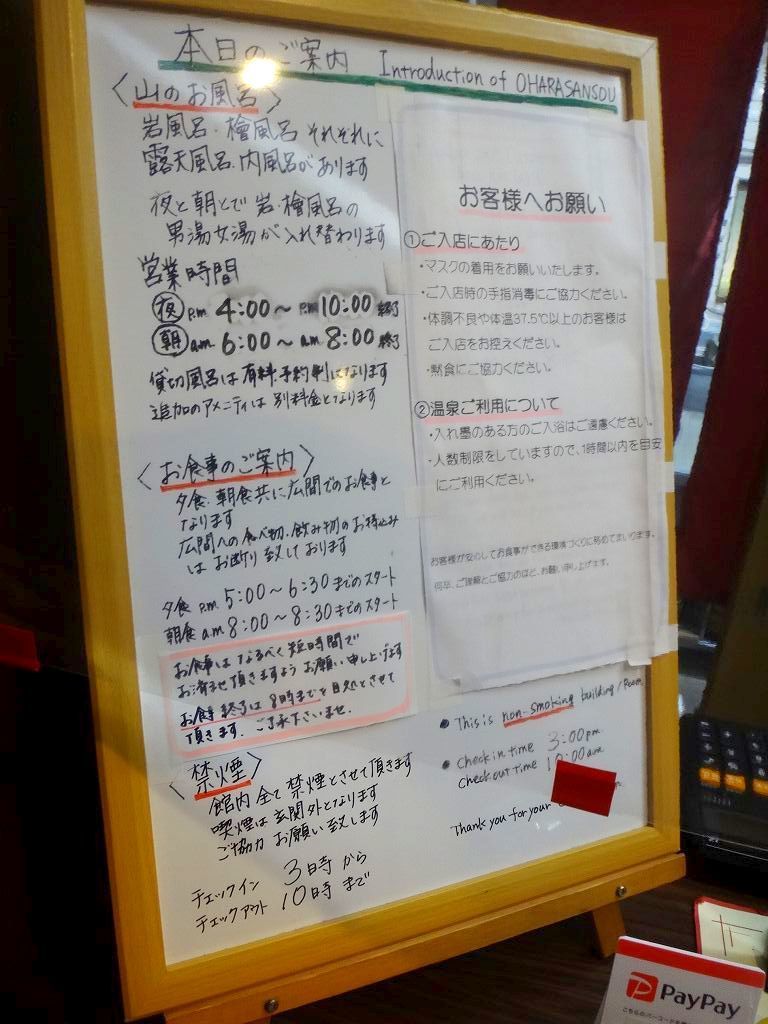 本日のご案内 Introduction of OHARASANSOU
〈山のお風呂〉
岩風呂・檜風呂 それぞれに
露天風呂・内風呂があります
夜と朝とで 岩・檜風呂の
男湯女湯が入れ替わります
営業時間
夜 P.m 4:00～P.m 10:00 終了
朝 am 6:00～am 8:00 終了
貸切風呂は有料・予約制になります
追加のアメニティは別料金となります
〈お食事のご案内〉
夕食・朝食共に広間でのお食事と
なります
広間への食べ物・飲み物のお持込み
はお断り致しております
夕食 P.m 5:00～6:30 までのスタート
朝食 am 8:00～8:30 までのスタート
お食事はなるべく短時間で
お済ませ頂きますようお願い申し上げます
お食事終了は8時までと目処とさせて
頂きます。ご了承下さいませ。
〈禁煙〉
館内全て禁煙とさせて頂きます
喫煙は玄関外となります
ご協力お願い致します
チェックイン 3時から
チェックアウト 10時まで
お客様へお願い
①ご入店にあたり
・マスクの着用をお願いいたします。
・ご入店時の手指消毒にご協力ください。
・体調不良や体温37.5℃以上のお客様は
ご入店をお控えください。
・黙食にご協力ください。
②温泉ご利用について
・入れ墨のある方のご入浴はご遠慮ください。
・人数制限をしていますので、1時間以内を目安
にご利用ください。
お客様が安心してお食事ができる環境づくりに努めてまいります。
何卒、ご理解とご協力のほど、お願い申し上げます。
● This is non-smoking building/Room
● Check in time 3:00pm
Check out time 10:00am
Thank you for your
PayPay